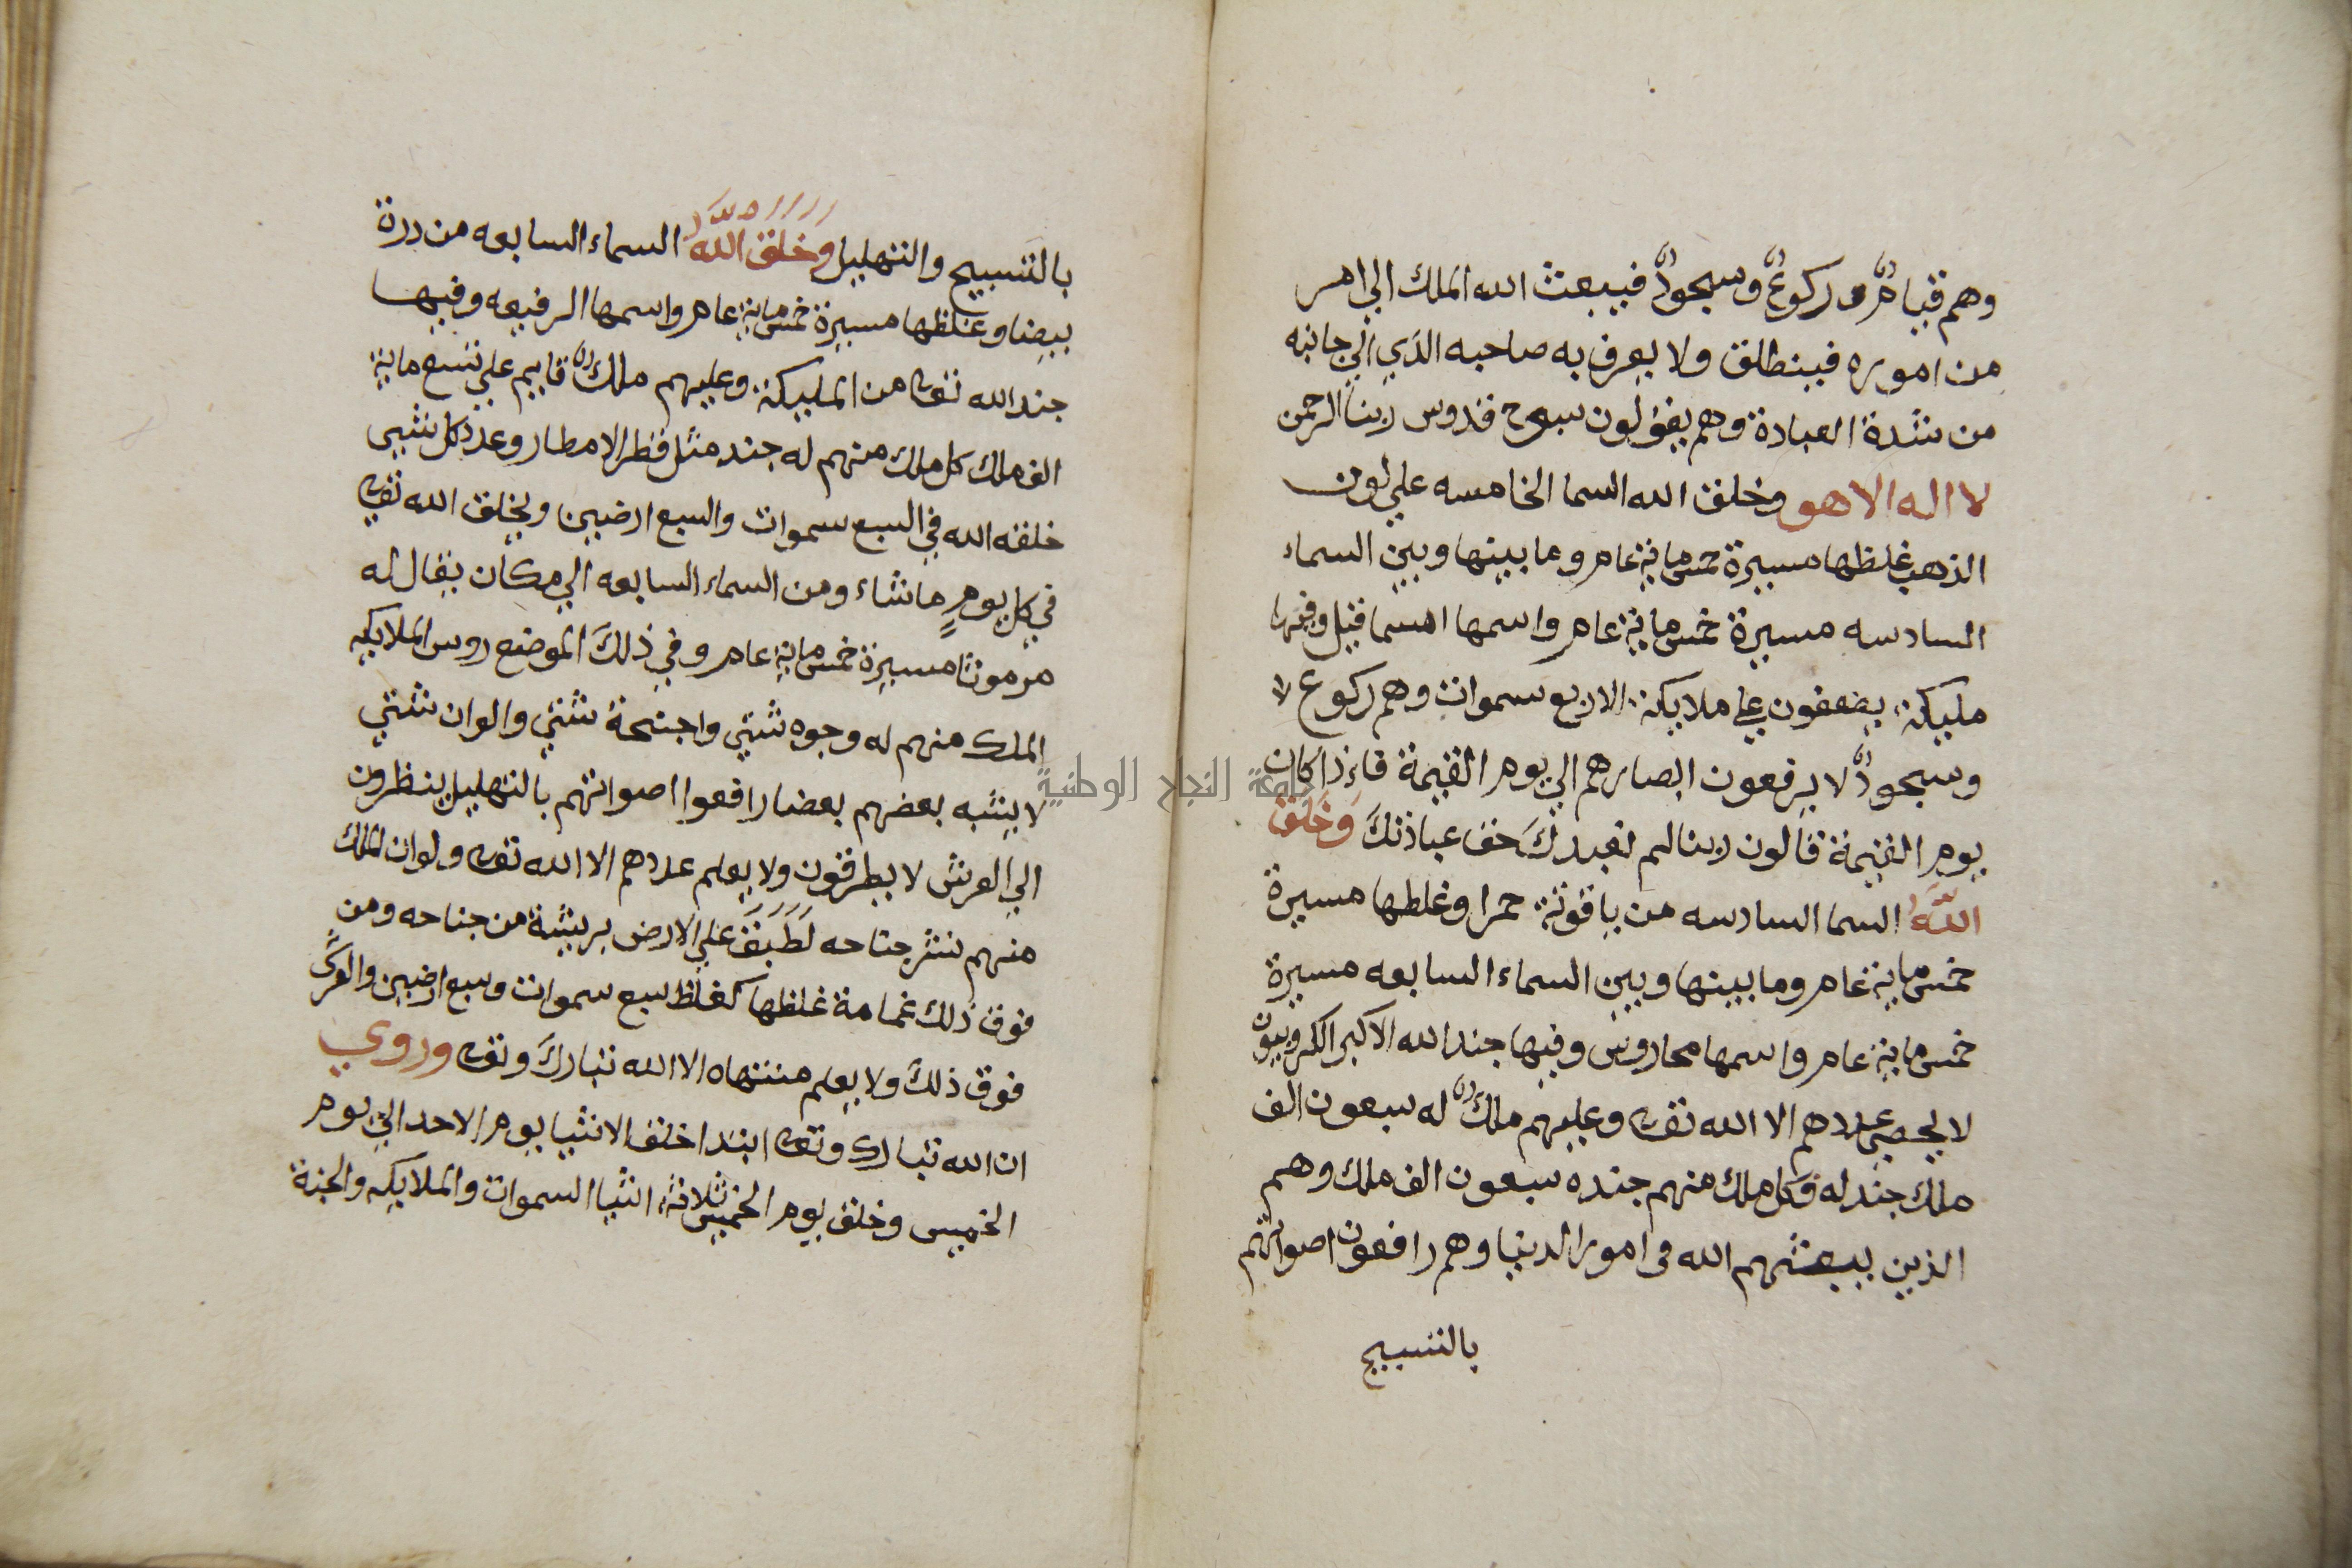 وهم قيامٌ وركوعٌ وسجودٌ فيبعث الله الملك الي امر
من اموره فينطلق ولا يعرف به صاحبه الذي الي جانبه
من شدة العبادة وهم يقولون سبوح قدوس ربنا الرحمن
لا اله الا هو وخلق الله السما الخامسه علي لون
الذهب غلظها مسيرة خمسماية عام وما بينها وبين السماء
السادسه مسيرة خمسماية عام واسمها امسماقيل وفيها
مليكة يضعفون علي ملايكة الاربع سموات وهم ركوع لا
وسجودٌ لا يرفعون ابصارهم الي يوم القيمة فاذا كان
يوم القيمة قالون ربنا لم نعبدك حق عبادتك وَخَلَقَ
اللهُ السما السادسه من ياقوتة حمرا وغلظها مسيرة
خمسماية عام وما بينها وبين السماء السابعه مسيرة
خمسماية عام واسمها محاروس وفيها جند الله الاكبر الكروبيون
لا يحصي عددهم الا الله تعالى وعليهم ملكٌ له سبعون الف
ملك جند له وكل ملك منهم جنده سبعون الف ملك وهم
الذين يبعثهم الله في امور الدنيا وهم رافعون اصواتهم
بالتسبيح
بالتسبيح والتهليل وَخَلَقَ اللهُ السماء السابعه من درة
بيضا وغلظها مسيرة خمسماية عام واسمها الرفيعه وفيها
جند الله تعالى من المليكة وعليهم ملكٌ قايم علي تسع ماية
الف ملك كل ملك منهم له جند مثل قطر الامطار وعدد كل شيي
خلقه الله في السبع سموات والسبع ارضين ويخلق الله تعالى
في كل يومٍ ما شاء ومن السماء السابعه الي مكان يقال له
مرموثا مسيرة خمسماية عام وفي ذلك الموضع روس الملايكه
الملك منهم له وجوه شتي واجنحة شتي والوان شتي
لا يشبه بعضهم بعضا رافعوا اصواتهم بالتهليل ينظرون
الي العرش لا يطرفون ولا يعلم عددهم الا الله تعالى ولو ان الملك
منهم نشر جناحه لَطَبَقَ علي الارض بريشة من جناحه ومن
فوق ذلك غمامة غلظها كغلظ سبع سموات وسبع ارضين والعرش
فوق ذلك ولا يعلم منتهاه الا الله تبارك وتعالى وروي
ان الله تبارك وتعالى ابتدا خلق الاشيا يوم الاحد الي يوم
الخميس وخلق يوم الخميس ثلاثة اشيا السموات والملايكه والجنة
جامعة النجاح الوطنية